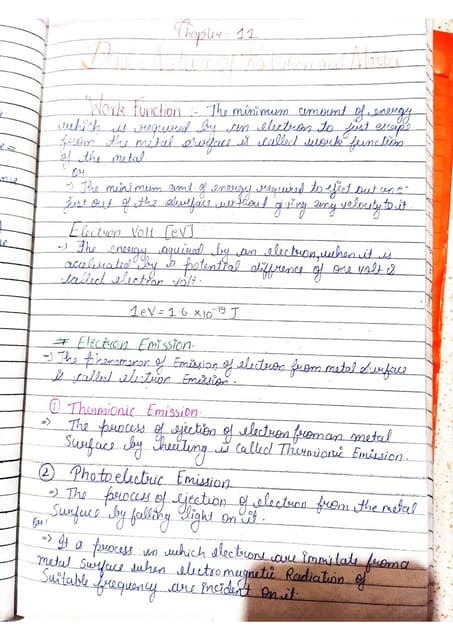 Chapter - 11
Dual Nature of Radiation and Matter
Work Function :- The minimum amount of energy
which is required by an electron to just escape
from the metal surface is called work function
of the metal
OR
-> The minimum amt of energy required to eject out an e-
just out of the surface without giving any velocity to it.
Electron Volt [eV]
-> The energy aquired by an electron, when it is
accelerated by a potential diffrence of one volt is
called electron volt.
1eV = 1.6 ×10⁻¹⁹ J
# Electron Emission.
-> The phenomenon of Emission of electron from metal surface
is called electron Emission.
① Thermionic Emission.
=> The process of ejection of electron from an metal
Surface by heating is called Thermionic Emission.
② Photoelectric Emission
=> The process of ejection of electron from the metal
Surface by falling light on it.
or:
=> It is a process in which electrons are immitate from a
metal surface when electromagnetic Radiation of
Suitable frequency are incident on it.